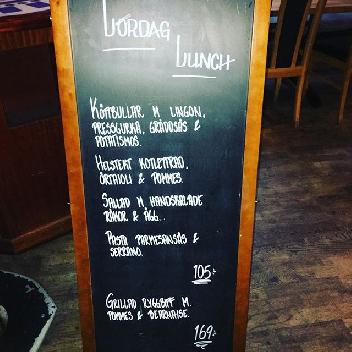 LÖRDAG
LUNCH
KÖTTBULLAR M LINGON,
PRESSGURKA, GRÄDDSÅS &
POTATISMOS.
HELSTEKT KOTLETTRAD,
ÖRTAIOLI & POMMES
SALLAD M HANDSKALADE
RÄKOR & ÄGG..
PASTA PARMESANSÅS &
SERRANO.
105:-
GRILLAD RYGGBIFF M.
POMMES & BEARNAISE.
169:-